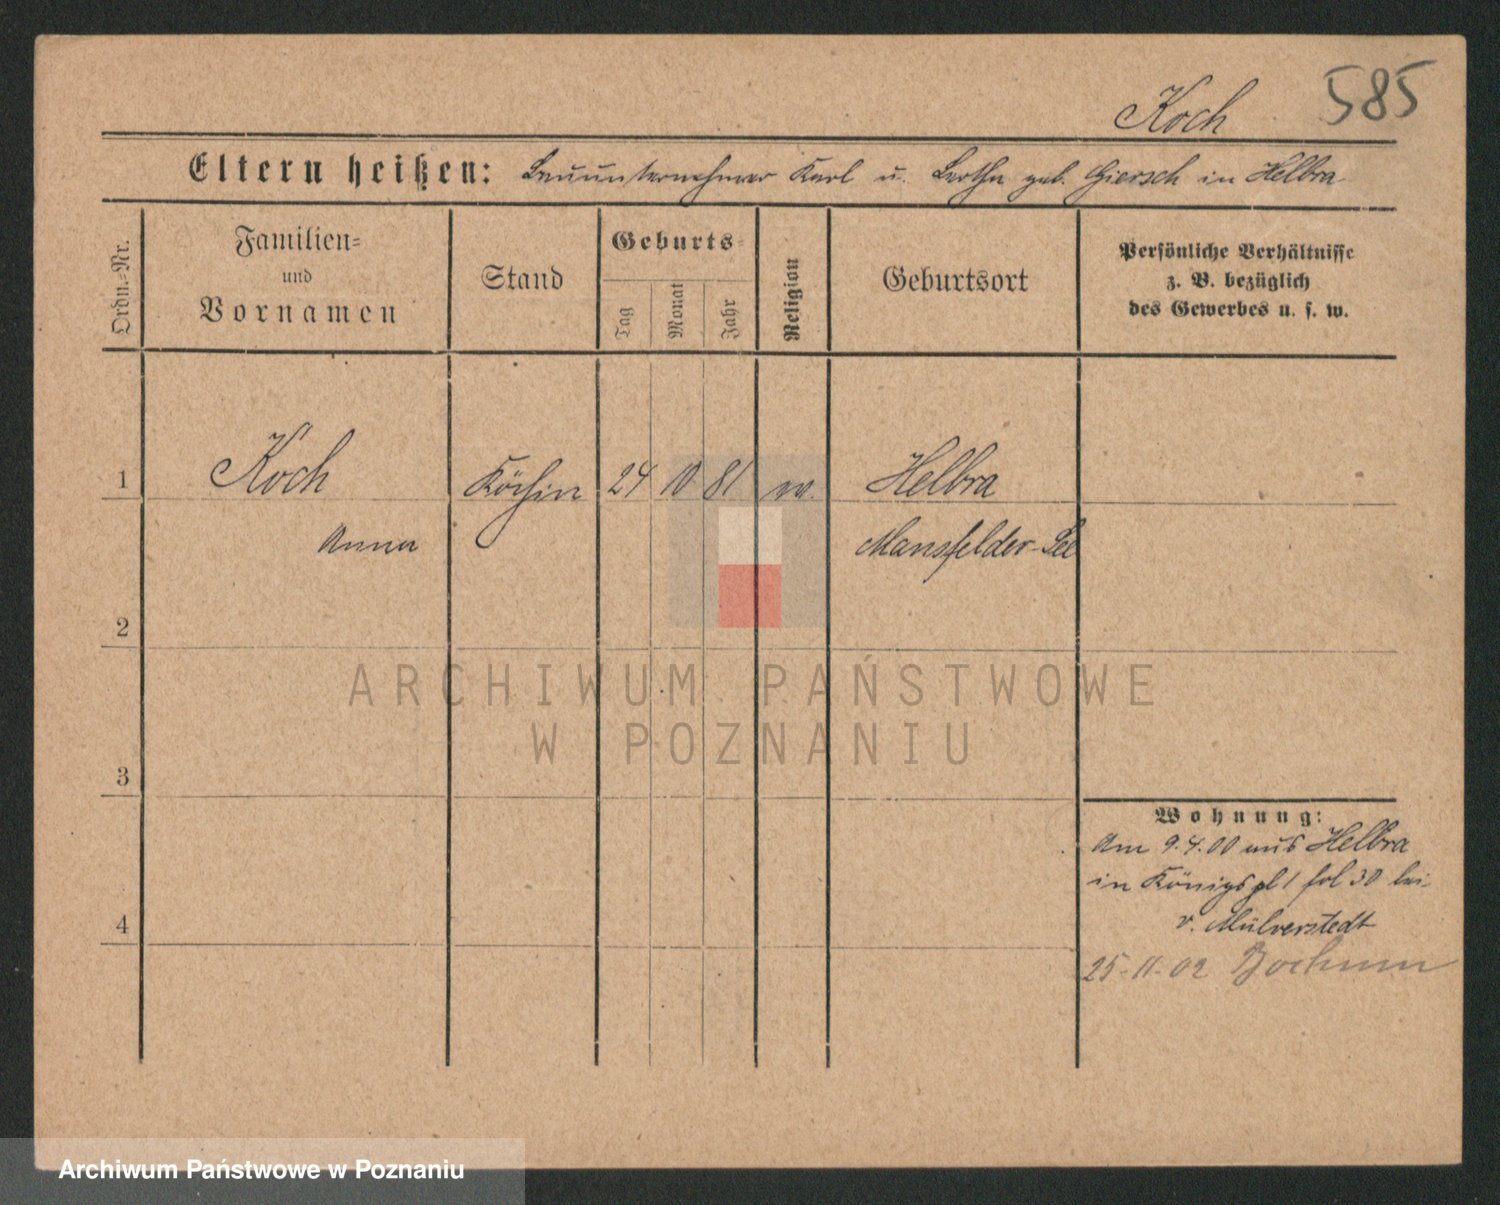 585
Koch
Eltern heißen: Bauunternehmer Karl u. Bertha geb. Giersch in Helbra
Ordn.-Nr.
Familien-
und
Vornamen
Stand
Geburts-
Tag
Monat
Jahr
Religion
Geburtsort
Persönliche Verhältnisse
z. B. bezüglich
des Gewerbes u. s. w.
1 Koch Köchin 24 10 81 ev. Helbra
Anna Mansfelder-See
2
ARCHIWUM PAŃSTWOWE
W POZNANIU
3
Wohnung:
Am 9.4.00 aus Helbra
in Königspl 1 fol 30 bei
v. Mülverstedt
4
25-11-02 Bochum
Archiwum Państwowe w Poznaniu